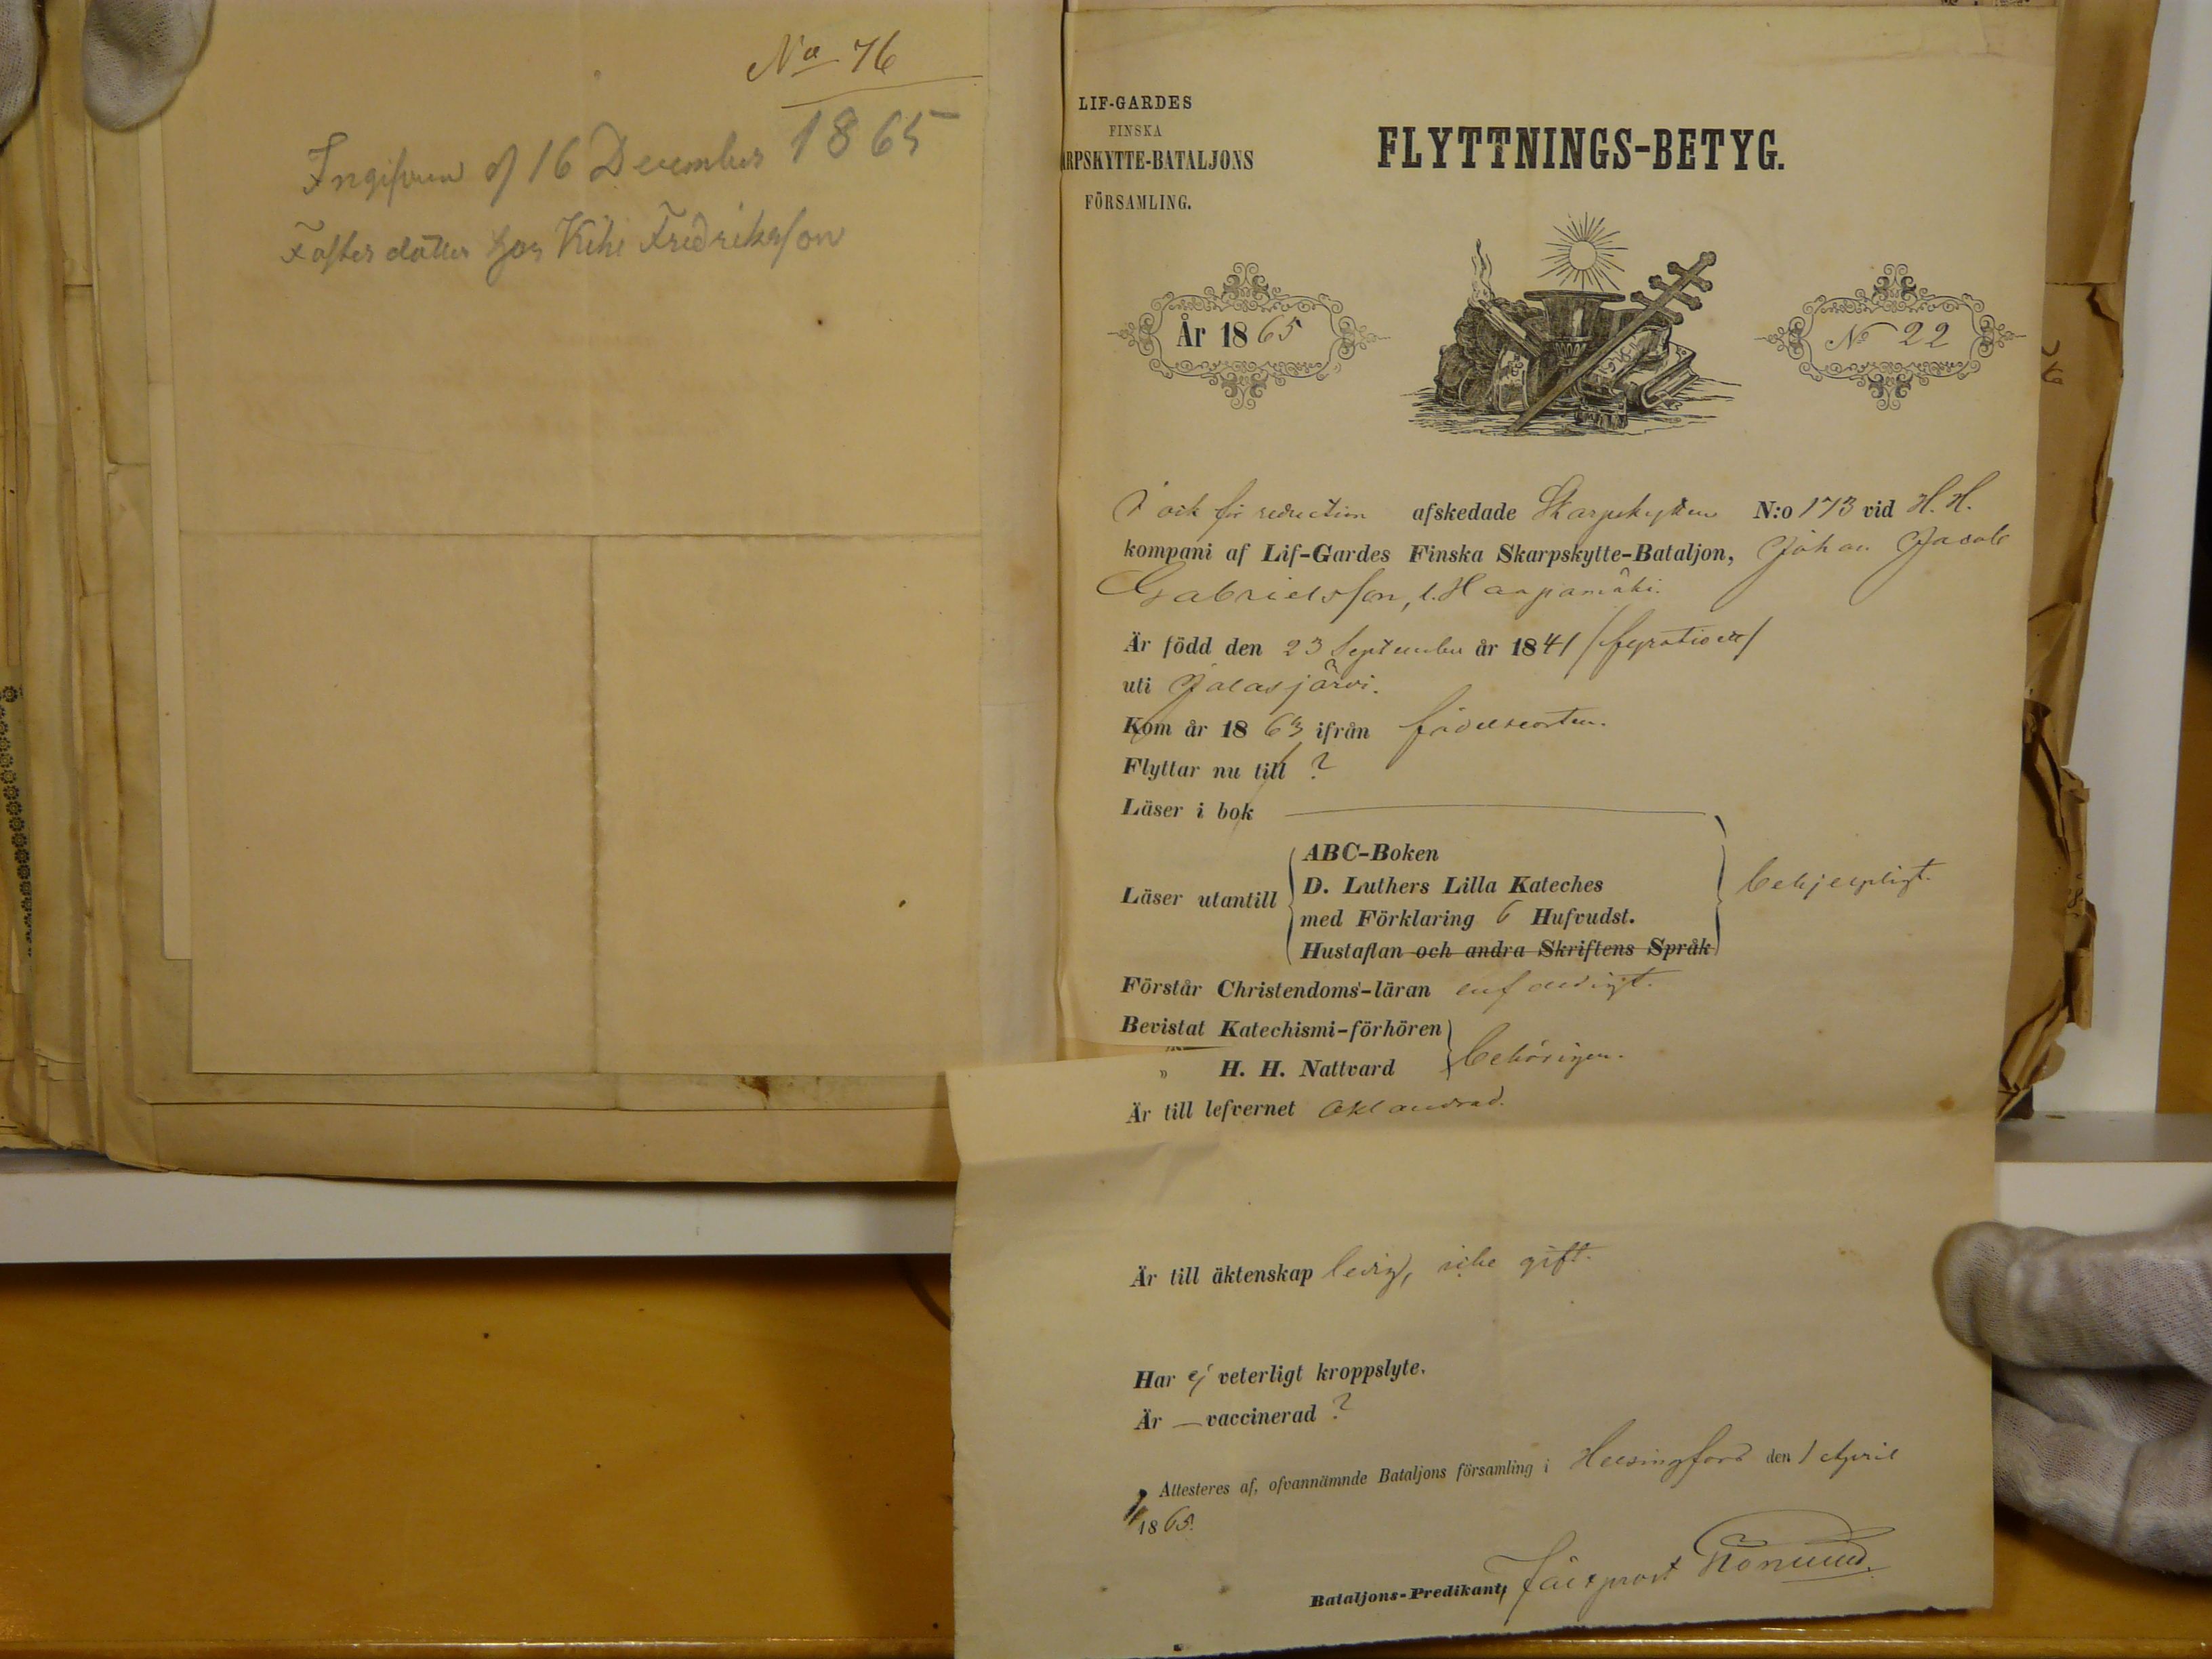 No 76
Ingifven d 16 December 1865
Foster dotter hos Kihi Fredriksson
LIF-GARDES
FINSKA
ARPSKYTTE-BATALJONS
FÖRSAMLING.
FLYTTNINGS-BETYG.
År 1865
No 22
I och för reduction afskedade Skarpskytten N:o 173 vid H. H.
kompani af Lif-Gardes Finska Skarpskytte-Bataljon, Johan Jacob
Gabrielsson, l. Haapamäki.
Är född den 23 September år 1841 /fyratioett/
uti Jalasjärvi.
Kom år 1863 ifrån födelseorten.
Flyttar nu till ?
Läser i bok
Läser utantill
ABC-Boken
D. Luthers Lilla Kateches
med Förklaring 6 Hufvudst.
Hustaflan och andra Skriftens Språk
behjelpligt.
Förstår Christendoms-läran enfaldigt.
Bevistat Katechismi-förhören
" H. H. Nattvard
behörigen.
Är till lefvernet oklandrad.
Är till äktenskap ledig, icke gift.
Har ej veterligt kroppslyte.
Är — vaccinerad ?
Attesteres af, ofvannämnde Bataljons församling i Helsingfors den 1 April
1865.
Bataljons-Predikant, Fältprost